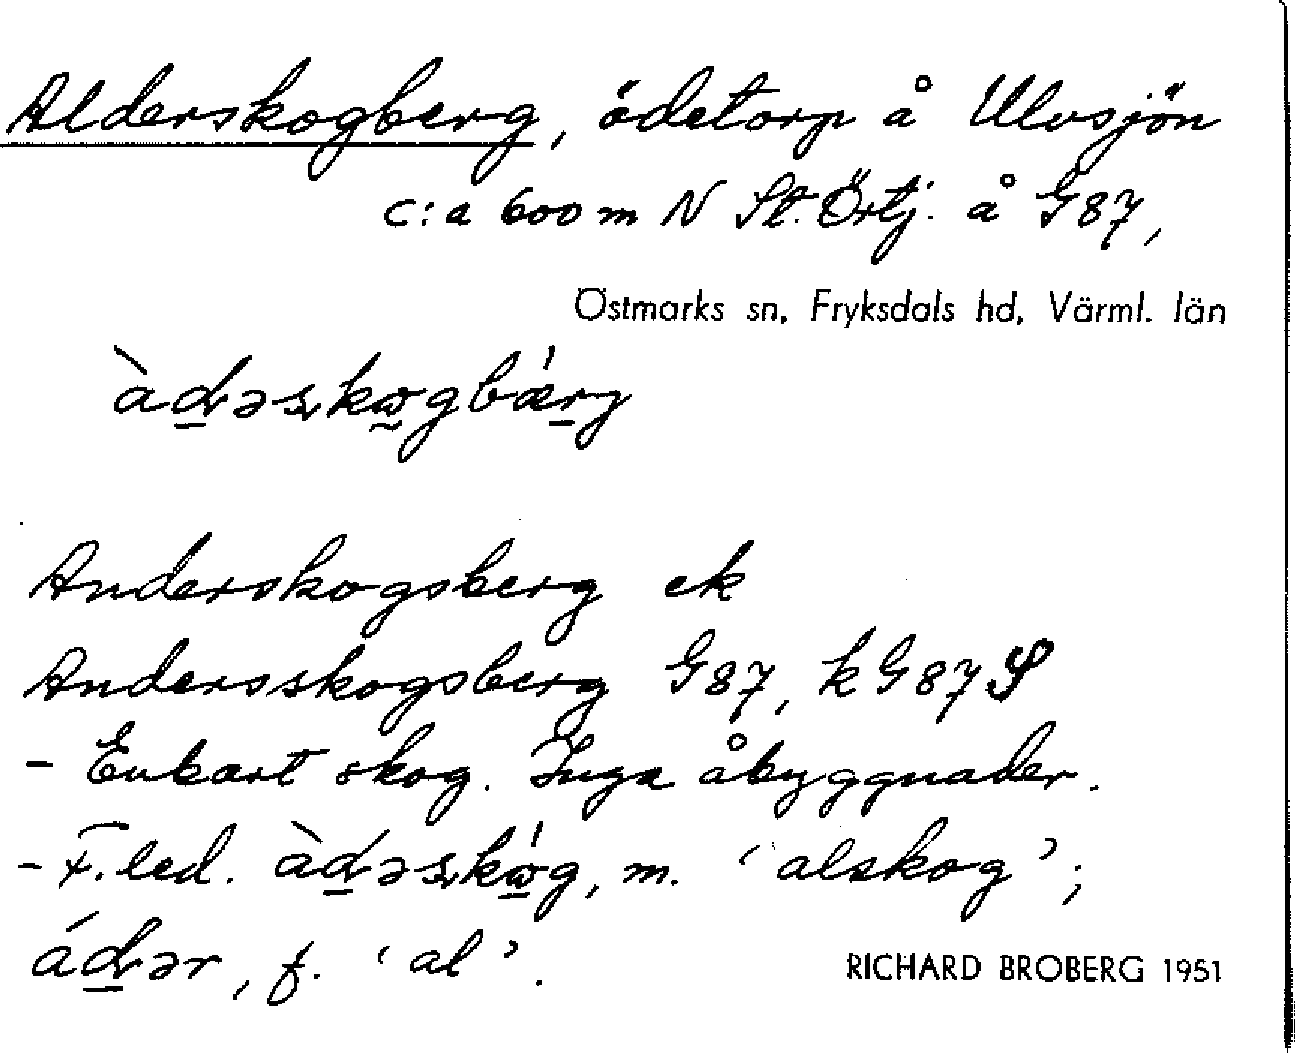 Alderskogberg, ödetorp å Ulvsjön
c:a 600 m N St. Örtj. å G87,
Östmarks sn, Fryksdals hd, Värml. län
àḏəskω̰gbǽrg
Anderskogsberg ek
Andersskogsberg G87, k G87
- Enbart skog. Inga åbyggnader.
- F. led. àḏəskώ̰g, m. ‘alskog’;
áḏər, f. ‘al’.
RICHARD BROBERG 1951